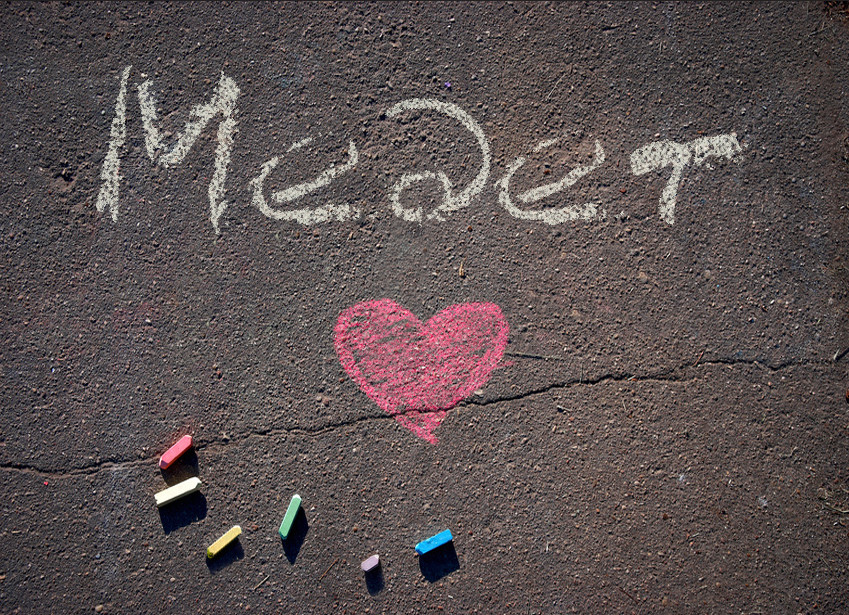 Медет